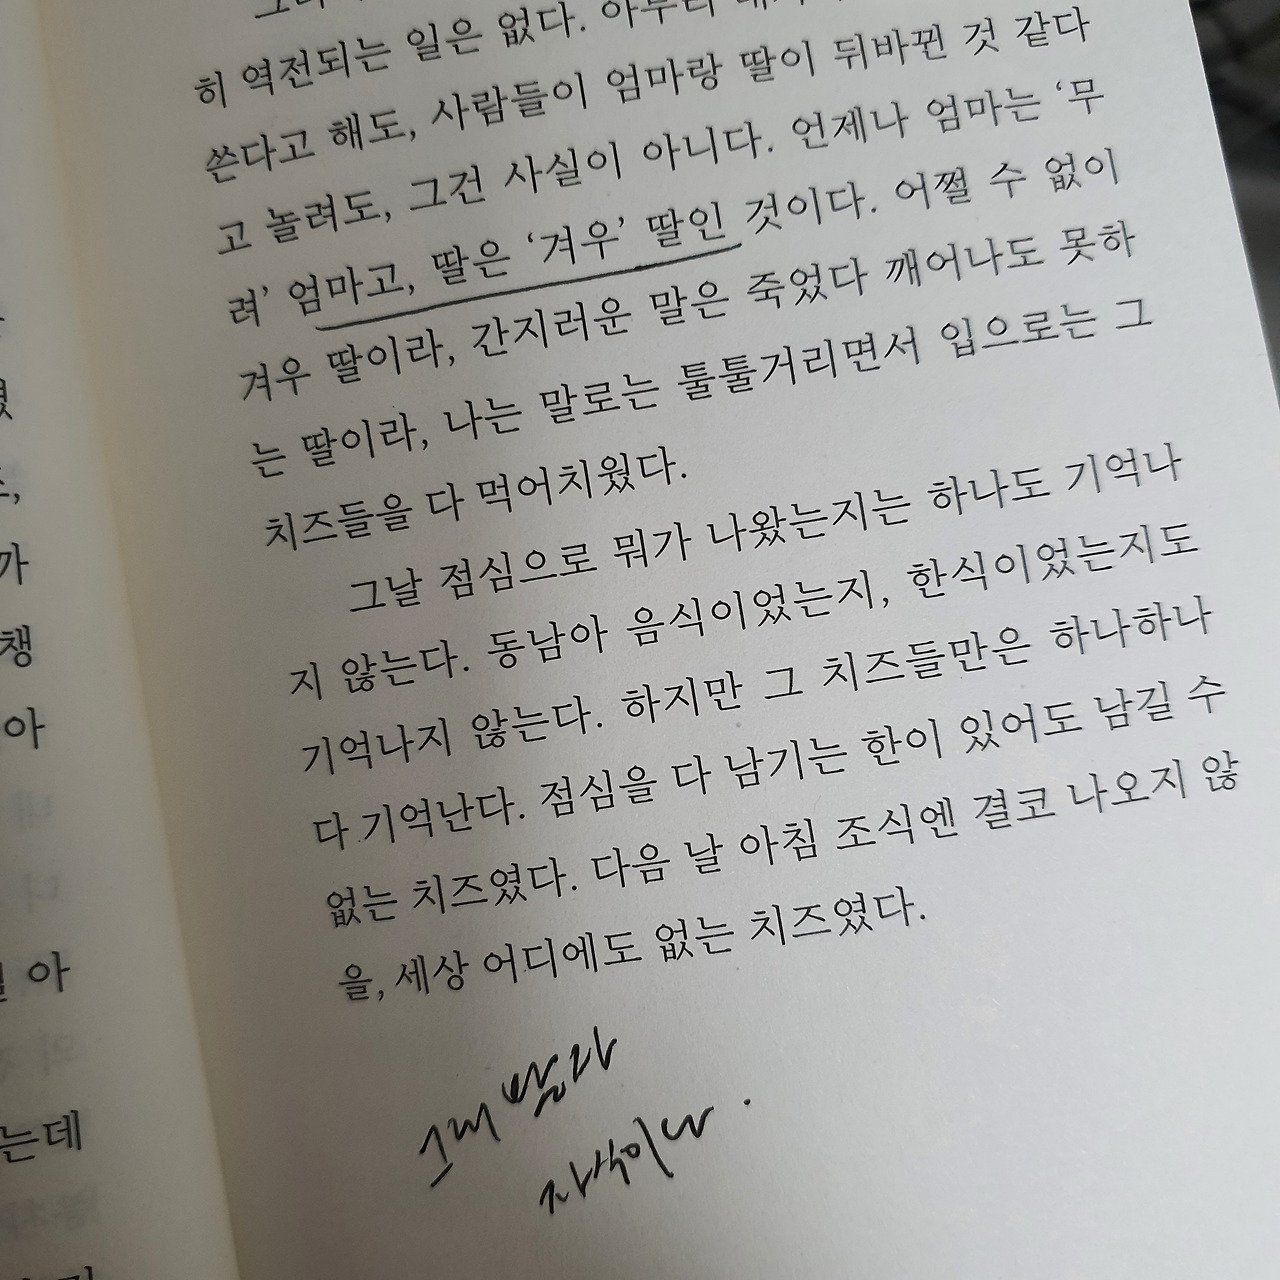 히 역전되는 일은 없다. 아무리
쓴다고 해도, 사람들이 엄마랑 딸이 뒤바뀐 것 같다
고 놀려도, 그건 사실이 아니다. 언제나 엄마는 ‘무
려’ 엄마고, 딸은 ‘겨우’ 딸인 것이다. 어쩔 수 없이
겨우 딸이라, 간지러운 말은 죽었다 깨어나도 못하
는 딸이라, 나는 말로는 툴툴거리면서 입으로는 그
치즈들을 다 먹어치웠다.
그날 점심으로 뭐가 나왔는지는 하나도 기억나
지 않는다. 동남아 음식이었는지, 한식이었는지도
기억나지 않는다. 하지만 그 치즈들만은 하나하나
다 기억난다. 점심을 다 남기는 한이 있어도 남길 수
없는 치즈였다. 다음 날 아침 조식엔 결코 나오지 않
을, 세상 어디에도 없는 치즈였다.
자식이다.
챙
아
아
는데